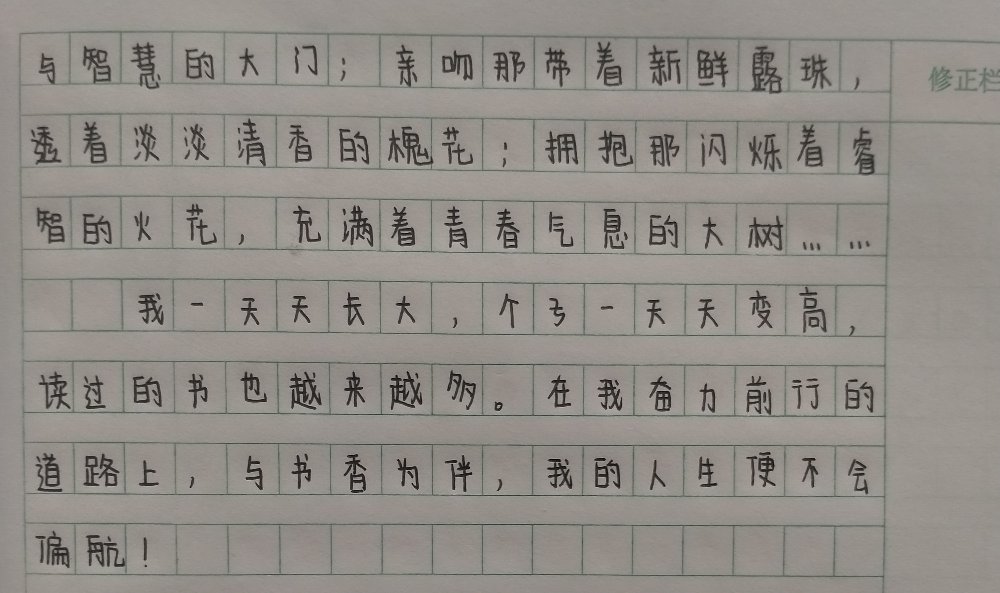 与智慧的大门；亲吻那带着新鲜露珠，
修正栏
透着淡淡清香的槐花；拥抱那闪烁着睿
智的火花，充满着青春气息的大树……
我一天天长大，个子一天天变高，
读过的书也越来越多。在我奋力前行的
道路上，与书香为伴，我的人生便不会
偏航！